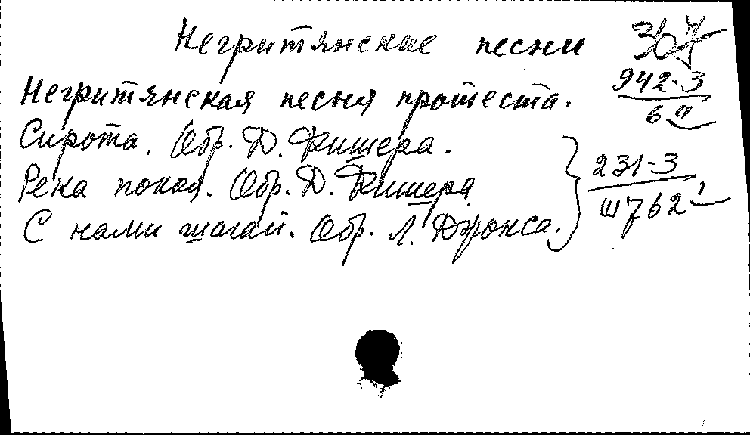 Негритянские песни
Негритянская песня протеста. 942-3
Сирота. Обр. Д. Фишера.
Река покоя. Обр. Д. Фишера 231-3
С нами шагай. Обр. Л. Джонса. Ш762